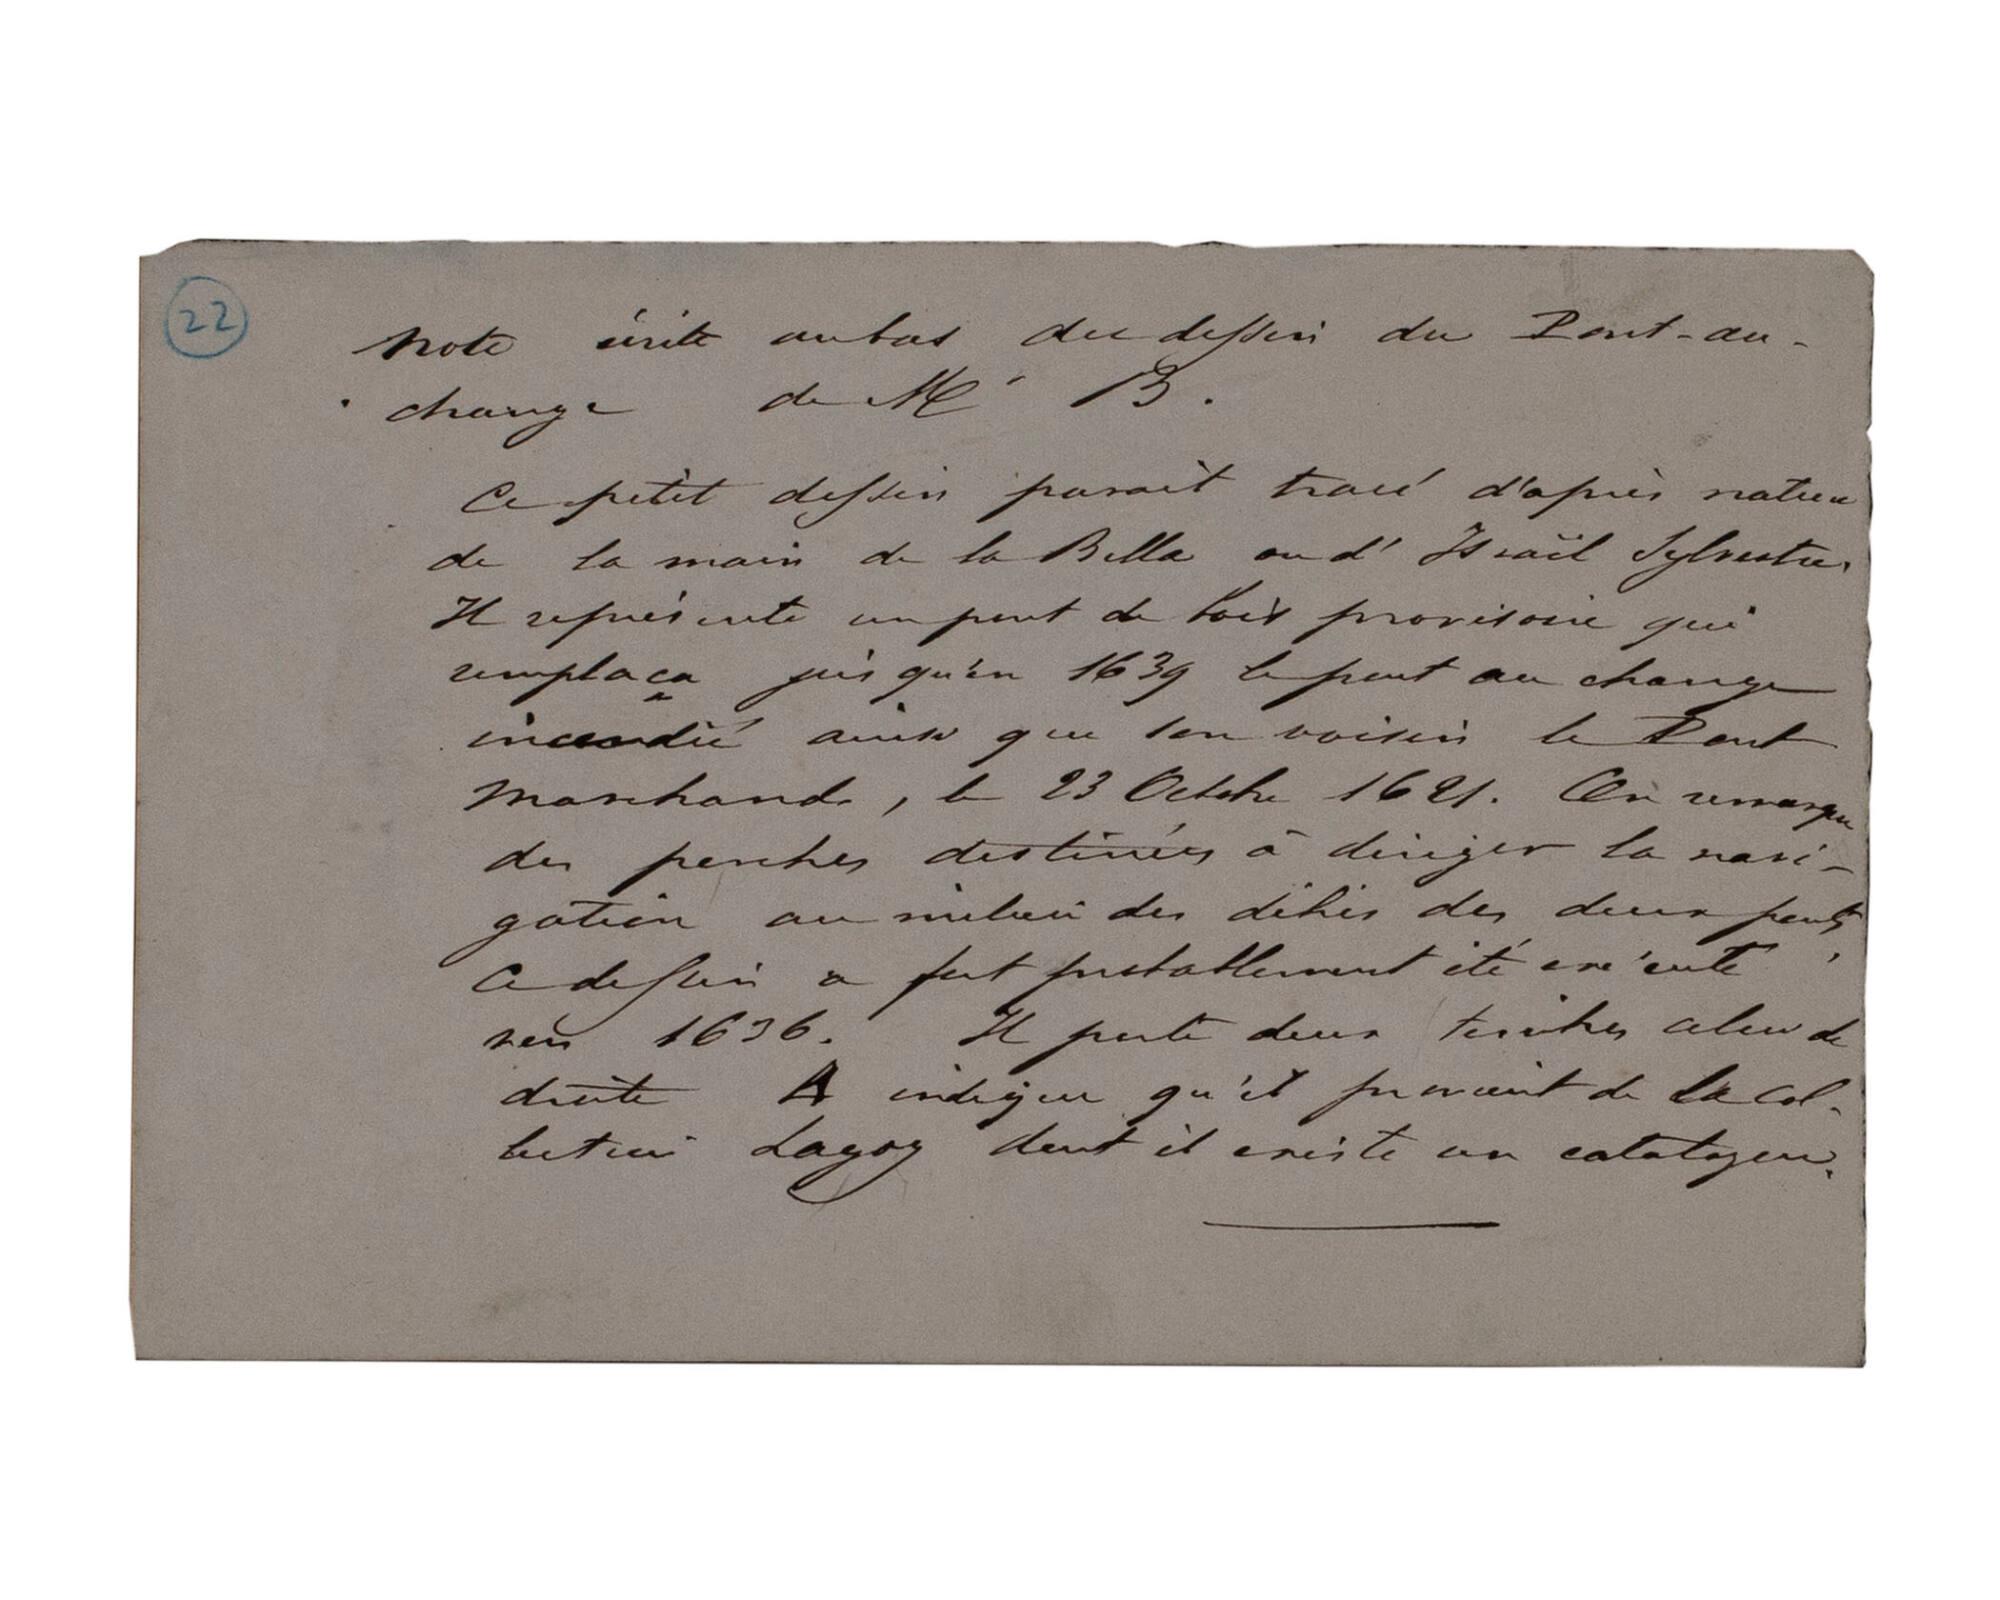 22
Note écrite au bas du dessin du Pont-au-
change de Mr B.
Ce petit dessin parait tracé d'après nature
de la main de la Bella ou d'Israël Sylvestre.
Il représente un pont de bois provisoire qui
remplaça jusqu'en 1639 le pont au change
incendié ainsi que son voisin le Pont
Marchand, le 23 Octobre 1621. On remarque
des perches destinées à diriger la navi-
gation au milieu des débris des deux ponts.
Ce dessin a fort probablement été exécuté
vers 1636. Il porte deux timbres celui de
droite indique qu'il provient de la Col-
lection Lagoy dont il existe un catalogue.